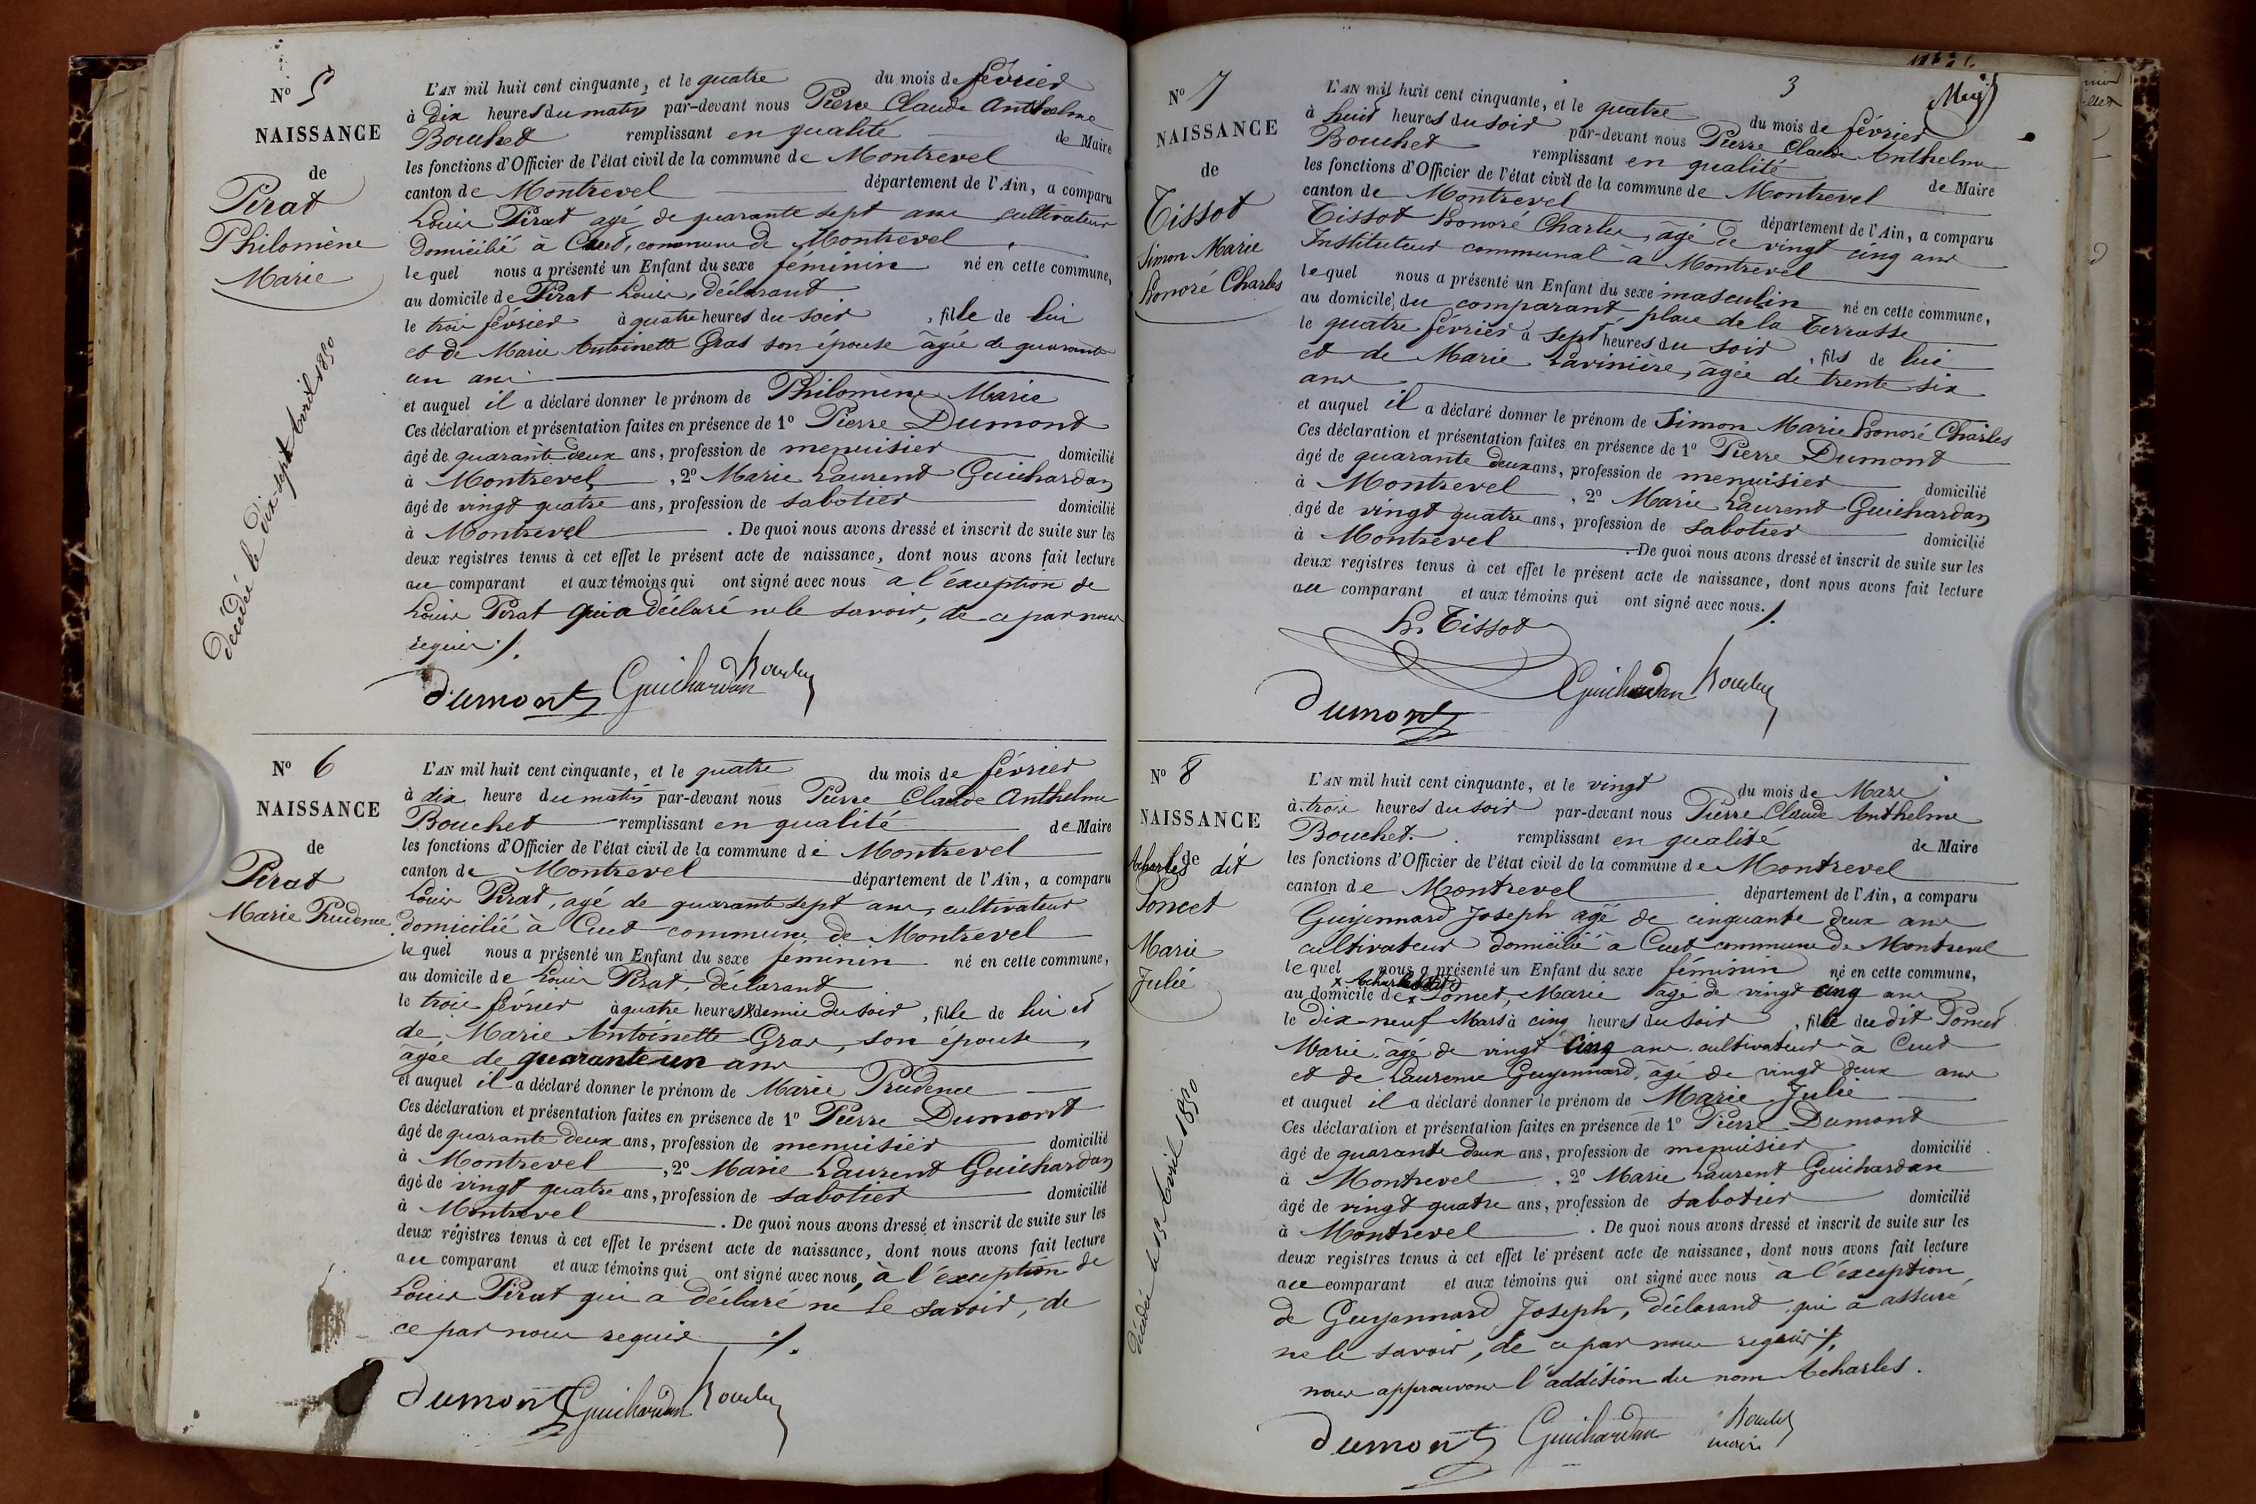 N° 5
NAISSANCE
de
Pirat
Philomène
Marie
Décédée le dix-sept Avril 1850
L'AN mil huit cent cinquante, et le quatre du mois de février
à dix heures du matin par-devant nous Pierre Claude Anthelme
Bouchet remplissant en qualité de Maire
les fonctions d'Officier de l'état civil de la commune de Montrevel
canton de Montrevel département de l'Ain, a comparu
Louis Pirat agé de quarante sept ans cultivateur
domicilié à Cuet, commune de Montrevel
lequel nous a présenté un Enfant du sexe féminin né en cette commune,
au domicile de Pirat Louis, déclarant
le trois février à quatre heures du soir, fille de lui
et de Marie Antoinette Gras son épouse âgée de quarante
un ans
et auquel il a déclaré donner le prénom de Philomène Marie
Ces déclaration et présentation faites en présence de 1° Pierre Dumont
âgé de quarante deux ans, profession de menuisier domicilié
à Montrevel, 2° Marie Laurent Guichardan
âgé de vingt quatre ans, profession de sabotier domicilié
à Montrevel. De quoi nous avons dressé et inscrit de suite sur les
deux registres tenus à cet effet le présent acte de naissance, dont nous avons fait lecture
au comparant et aux témoins qui ont signé avec nous à l'exception de
Louis Pirat qui a déclaré ne le savoir, de ce par nous
requis ./.
Dumont Guichardan Bouchet
N° 6
NAISSANCE
de
Pirat
Marie Prudence
L'AN mil huit cent cinquante, et le quatre du mois de février
à dix heure du matin par-devant nous Pierre Claude Anthelme
Bouchet remplissant en qualité de Maire
les fonctions d'Officier de l'état civil de la commune de Montrevel
canton de Montrevel département de l'Ain, a comparu
Louis Pirat, agé de quarante sept ans, cultivateur
domicilié à Cuet commune de Montrevel
lequel nous a présenté un Enfant du sexe féminin né en cette commune,
au domicile de Louis Pirat, déclarant
le trois février à quatre heures & demie du soir, fille de lui et
de Marie Antoinette Gras, son épouse,
âgée de quarante un ans
et auquel il a déclaré donner le prénom de Marie Prudence
Ces déclaration et présentation faites en présence de 1° Pierre Dumont
âgé de quarante deux ans, profession de menuisier domicilié
à Montrevel, 2° Marie Laurent Guichardan
âgé de vingt quatre ans, profession de sabotier domicilié
à Montrevel. De quoi nous avons dressé et inscrit de suite sur les
deux régistres tenus à cet effet le présent acte de naissance, dont nous avons fait lecture
au comparant et aux témoins qui ont signé avec nous, à l'exception de
Louis Pirat qui a déclaré ne le savoir, de
ce par nous requis ./.
Dumont Guichardan Bouchet
3
N° 7
NAISSANCE
de
Tissot
Simon Marie
Honoré Charles
L'AN mil huit cent cinquante, et le quatre du mois de février
à huit heures du soir par-devant nous Pierre Claude Anthelme
Bouchet remplissant en qualité de Maire
les fonctions d'Officier de l'état civil de la commune de Montrevel
canton de Montrevel département de l'Ain, a comparu
Tissot Honoré Charles, agé de vingt cinq ans
Instituteur communal à Montrevel
lequel nous a présenté un Enfant du sexe masculin né en cette commune,
au domicile du comparant place de la Terrasse
le quatre février à sept heures du soir, fils de lui
et de Marie Lavinière, âgée de trente six
ans
et auquel il a déclaré donner le prénom de Simon Marie Honoré Charles
Ces déclaration et présentation faites en présence de 1° Pierre Dumont
âgé de quarante deux ans, profession de menuisier domicilié
à Montrevel, 2° Marie Laurent Guichardan
âgé de vingt quatre ans, profession de sabotier domicilié
à Montrevel. De quoi nous avons dressé et inscrit de suite sur les
deux registres tenus à cet effet le présent acte de naissance, dont nous avons fait lecture
au comparant et aux témoins qui ont signé avec nous. ./.
H. Tissot
Dumont Guichardan Bouchet
N° 8
NAISSANCE
de
Acharles dit
Poncet
Marie
Julie
Décédée le 15 Avril 1850
L'AN mil huit cent cinquante, et le vingt du mois de Mars
à trois heures du soir par-devant nous Pierre Claude Anthelme
Bouchet. remplissant en qualité de Maire
les fonctions d'Officier de l'état civil de la commune de Montrevel
canton de Montrevel département de l'Ain, a comparu
Guyennard Joseph agé de cinquante deux ans
cultivateur domicilié à Cuet commune de Montrevel
lequel nous a présenté un Enfant du sexe féminin né en cette commune,
x Acharles dit
au domicile de x Poncet, Marie agé de vingt cinq ans
le dix-neuf Mars à cinq heures du soir, fille du dit Poncet
Marie, âgé de vingt cinq ans cultivateur à Cuet
et de Laurence Guyennard, age de vingt deux ans
et auquel il a déclaré donner le prénom de Marie Julie
Ces déclaration et présentation faites en présence de 1° Pierre Dumont
âgé de quarante deux ans, profession de menuisier domicilié
à Montrevel, 2° Marie Laurent Guichardan
âgé de vingt quatre ans, profession de sabotier domicilié
à Montrevel. De quoi nous avons dressé et inscrit de suite sur les
deux registres tenus à cet effet le présent acte de naissance, dont nous avons fait lecture
au comparant et aux témoins qui ont signé avec nous à l'exception
de Guyennard Joseph, déclarant qui a assuré
ne le savoir, de ce par nous requis ./.
nous approuvons l'addition du nom Acharles.
Dumont Guichardan Bouchet
maire